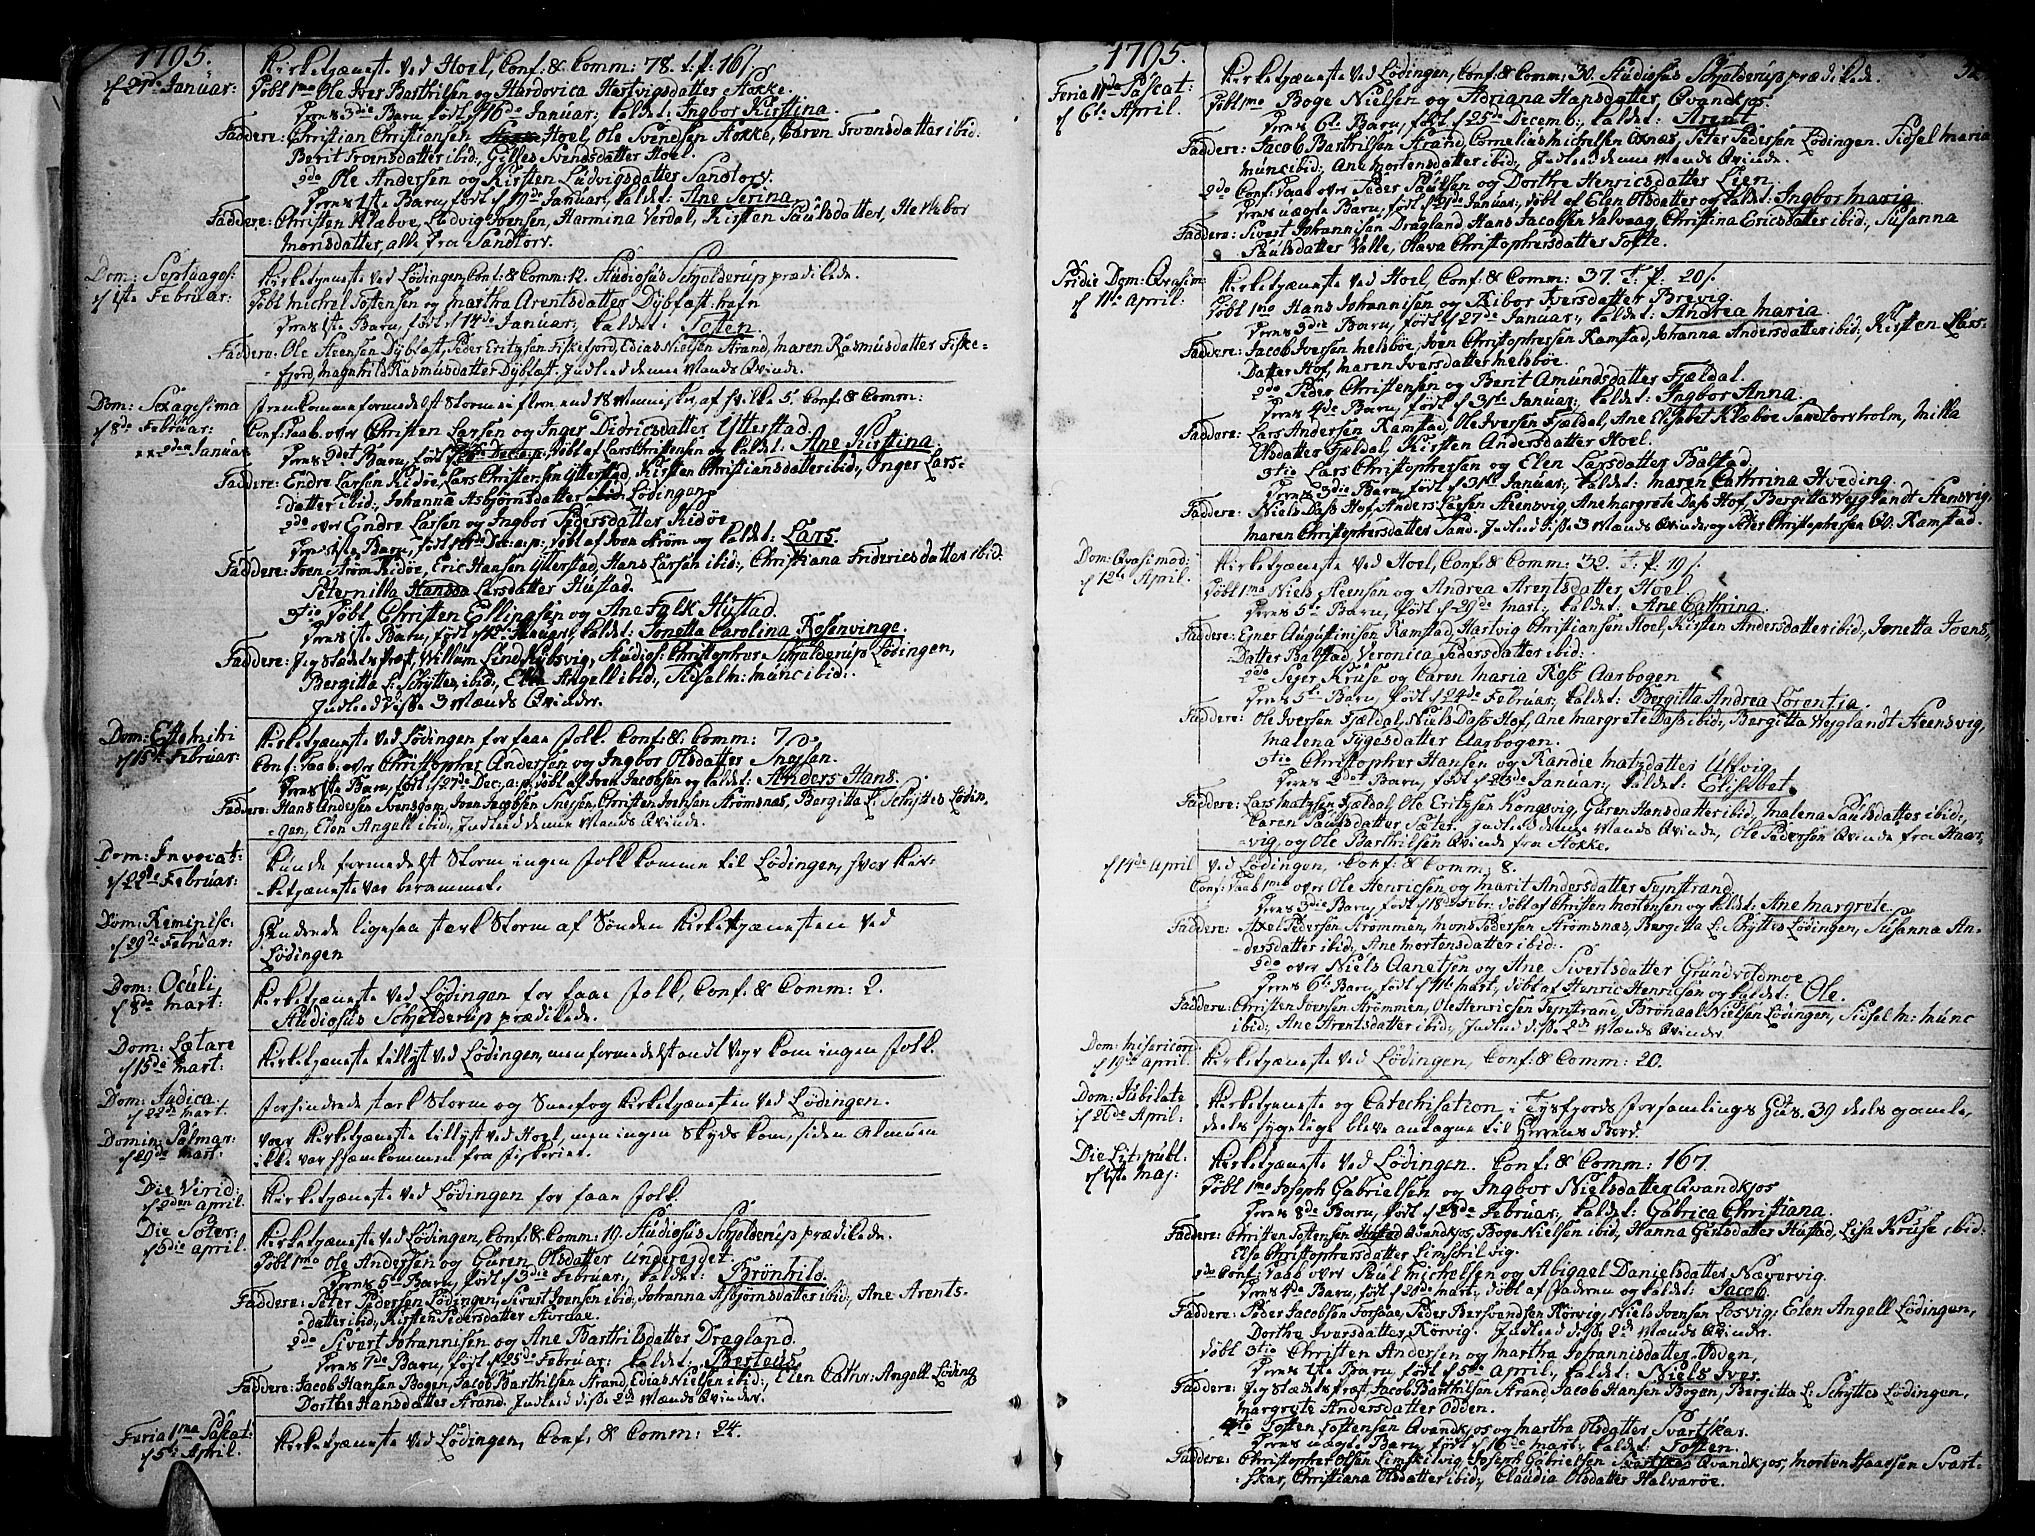 1795.
Kirketjæneste ved Hoel, Conf: & Comm: 78. t. f: 16/.
Januar:
Døbt 1mo Ole Iver Barthelsen og Hardovica Hertvigsdatter Kokke.
Deres 3die Barn, født 16de Januar; kaldet: Ingbor Kirstina.
Faddere: Christian Christiansen Hoel, Ole Svendsen Kokke, Caren Tronsdatter ibid:
Berit Tronsdatter ibid; Gilles Svendsdatter Hoel.
2do Ole Andersen og Kirsten Ludvigsdatter Sandtorv.
Deres 1ste Barn, født Januar; kaldet: Ane Serina.
Faddere: Christen Klæboe, Ludvig Ivensen, Harmina Verdal, Kirsten Paulsdatter,
Monsdatter, alle fra Sandtorv.
Dom: Septuages:
d 1ste Februar:
Kirketjæneste ved Lödingen, Conf: & Comm: 12. Studiosus Schjelderup prædikede.
Døbt Michel Tostensen og Martha Arentsdatter Dybfæst: havn
Deres 1ste Barn, født d 14de Januar; kaldet: Tosten.
Faddere: Ole Steensen Dybfæst, Peder Eritzsen Fiskefjord, Edias Nielsen Strand, Maren Rasmusdatter Fiske-
fjord, Magnhild Rasmusdatter Dybfæst. Indleed denne Mands Qvinde.
Dom: Sexagesima
d 8de Februar:
Fremkomme formedelst Storm ei fleere end 18 Mennisker, af hvilke 5. Conf: & Comm:
Conf: Daab. over Christen Larsen og Inger Didricsdatter Ytterstad.
Deres 2det Barn, født døbt af Lars Christensen og kaldet: Ane Kirstina.
Faddere: Endre Larsen Kidöe, Lars Christensen Ytterstad, Kirsten Christiansdatter ibid:, Inger Lars-
datter ibid:, Johanna Asbjørnsdatter Lödingen.
2do over Endre Larsen og Ingbor Pedersdatter Kidöe.
Deres 1ste Barn, født Dec: a: p: døbt af Iven Ström og kaldet: Lars.
Faddere: Iven Ström Kidöe, Eric Hansen Ytterstad, Hans Larsen ibid:, Christiana Fridericsdatter ibid:
Peternilla Larsdatter Hustad.
3tio Døbt Christen Ellingsen og Ane Falk Hustad.
Deres 1ste Barn, født Januar; kaldet: Jonetta Carolina Rosenvinge.
Faddere: Jeg Stædets Præst, Willum Lind Kobsvig, Studios: Christopher Schjelderup Lödingen,
Bergitta L: Schyttes ibid:, Elen Angell ibid:, Sidsel M: Munc ibid:.
Indleed disse 3 Mænds Qvinder.
Dom: Estomihi
d 15de Februar:
Kirketjæneste ved Lödingen for faae Folk. Conf: & Comm: 7
Conf: Daab. over Christopher Andersen og Ingbor Olsdatter Snejsen.
Deres 1ste Barn, født d 27de Dec: a: p: døbt af Iven Jacobsen og kaldet: Anders Hans.
Faddere: Hans Andersen Svensgam, Iven Jacobsen Snejsen, Christen Ivensen Strömsnæs, Bergitta L: Schyttes Lödin-
gen, Elen Angell ibid:, Indleed denne Mands Qvinde.
Dom: Invocat:
d 22de Februar:
Kunde formedelst Storm ingen Folk komme til Lödingen, hvor Kir-
ketjæneste var berammet.
Dom: Reminisc:
d 29de Februar:
Hindrede ligesaa stærk Storm af Sønden Kirketjænesten ved
Lödingen
Dom: Oculi,
d 8de Mart:
Kirketjæneste ved Lödingen for faae Folk, Conf: & Comm: 2.
Studiosus Schjelderup prædikede.
Dom: Lætare
d 15de Mart:
Kirketjæneste tillyst ved Lödingen, men formedelst ondt Veyr kom ingen Folk.
Dom: Judica.
d 22de Mart.
Forhindrede stærk Storm og Sneefog Kirketjænesten ved Lödingen.
Domin: Palmar:
d 29de Mart:
Var Kirketjæneste tillyst ved Hoel, men ingen Skyds kom, siden Almuen
ikke var hjemkommen fra Fiskeriet.
Die Virid:
d 2den April.
Kirketjæneste ved Lödingen for faae Folk.
Die Soter:
April.
Kirketjæneste ved Lödingen, Conf: & Comm: 19. Studiosus Schjelderup prædikede.
Døbt 1mo Ole Andersen og Guren Olsdatter Underejdet.
Deres 5te Barn, født d 3die Februar; kaldet: Brönhild.
Faddere: Peter Pedersen Lödingen, Sivert Ivensen ibid, Johanna Asbjørnsdatter ibid:, Ane Arents-
datter ibid:, Kirsten Pedersdatter Stordae.
2do Sivert Johannisen og Ane Barthelsdatter Dragland.
Deres 7de Barn, født d 25de Februar; kaldet: Berteus.
Faddere: Jacob Hansen Bogen, Jacob Barthelsen Strand, Edias Nielsen ibid:, Elen Cathr: Angell Löding
Dorthe Hansdatter Strand. Indleed disse 2de Mænds Qvinder.
Feria 1ma Pascat:
d 5te April.
Kirketjæneste ved Lödingen, Conf: & Comm: 24.
1795.
32.
Feria IIda Pascat:
d 6te April.
Kirketjæneste ved Lödingen, Conf: & Comm: 30. Studiosus Schjelderup prædikede.
Døbt 1mo Boge Nielsen og Adriana Hansdatter Qvandkjos.
Deres 6te Barn, født d 25de Decemb:, kaldet: Arent
Faddere: Jacob Barthelsen Strand, Cornelias Michelsen Oxnæs, Peter Pedersen Lödingen. Sidsel Maria
Munc ibid:, Ane Mortensdatter ibid:, Indleed denne Mands Qvinde.
2do Conf: Daab over Peder Paulsen og Dorthe Henricsdatter Lien.
Deres uægte Barn, født Januar; døbt af Elen Olsdatter og kaldet: Ingbor Maria
Faddere: Sivert Johannisen Dragland, Hans Jacobsen Valvaag, Christina Ericsdatter ibid:, Susanna
Paulsdatter Valle, Olava Christophersdatter Tofte.
Pridie Dom: Qvasim
d 11te April:
Kirketjæneste ved Hoel, Conf: & Comm: 37. t. f: 20/.
Døbt 1mo Hans Johannisen og Ribor Iversdatter Brevig.
Deres 3die Barn, født d 27de Januar; kaldet: Andrea Maria
Faddere: Jacob Iversen Melsböe, Iven Christophersen Ramstad, Johanna Andersdatter ibid:, Kirsten Lars-
Datter Hof, Maren Iversdatter Melsböe.
2do Peder Christensen og Berit Amundsdatter Fjældal.
Deres 4de Barn, født d 31te Januar; kaldet: Ingbor Anna.
Faddere: Lars Andersen Ramstad, Ole Iversen Fjældal, Ane Elisabet Klæboe Sandtorvholm, Milla
Olsdatter Fjældal, Kirsten Andersdatter Hoel.
3tio Lars Christophersen og Elen Larsdatter Balstad.
Deres 3die Barn, født d 31te Januar; kaldet: Maren Cathrina Hveding.
Faddere: Niels Dass Hof, Anders Larsen Steensvig, Ane Margrete Dass Hof, Bergitta Weyglandt Stensvig,
Maren Christophersdatter Sand. Indleed disse 3 Mænds Qvinder og Peder Christophersen Qv. Ramstad.
Dom: Qvasimod:
d 12te April.
Kirketjæneste ved Hoel, Conf: & Comm: 32. t. f: 19/.
Døbt 1mo Niels Steensen og Andrea Arentsdatter Hoel.
Deres 5te Barn, født d 29de Mart; kaldet: Ane Cathrina.
Faddere: Ener Augustinisen Ramstad, Hartvig Christiansen Hoel, Kirsten Andersdatter ibid:, Jonetta Ivens-
Datter Balstad, Veronica Pedersdatter ibid:
2do Peger Kruse og Caren Maria Ross Aarbogen
Deres 5te Barn, født d 24de Februar; kaldet: Bergitta Andrea Lorentia.
Faddere: Ole Iversen Fjældal, Niels Dass Hof, Ane Margrete Dass ibid:, Bergitta Weyglandt Steensvig,
Malena Tygesdatter Aarbogen.
3tio Christopher Hansen og Randie Matzdatter Utvig.
Deres 2det Barn, født d 23de Januar; kaldet: Elisabet.
Faddere: Lars Matzsen Fjældal, Ole Eritzsen Kongsvig, Guren Hansdatter ibid:, Malena Paulsdatter ibid:,
Caren Paulsdatter Sæter. Indleed denne Mands Qvinde, Ole Pedersens Qvinde fra Haar-
vig, og Ole Barthelsen Qvinde fra Kokke.
d 14de April
Ved Lödingen, Conf: & Comm: 8.
Conf: Daab 1mo over Ole Henricsen og Marit Andersdatter Fynstrand.
Deres 3die Barn, født d 18de Febr: døbt af Christen Mortensen og kaldet: Ane Margrete.
Faddere: Axel Pedersen Strömmen, Mons Pedersen Strömsnæs, Bergitta L: Schyttes Lödingen, Susanna An-
dersdatter ibid:, Ane Mortensdatter ibid:.
2do over Niels Aanetsen og Ane Sivertsdatter Grundvoldmoe
Deres 6te Barn, født d 11te Mart; døbt af Henric Henricsen og kaldet: Ole.
Faddere: Christen Ivensen Strömmen, Ole Henricsen Fynstrand, Brönaal Nielsen Lödingen, Sidsel M: Munc
ibid:, Ane Arentsdatter ibid:, Indleed disse 2de Mænds Qvinder.
Dom: Misericord
d 19de April.
Kirketjæneste ved Lödingen, Conf: & Comm: 20.
Dom: Jubilate
d 26de April:
Kirketjæneste og Catechisation i Tysfjords Forsamlings Hus. 39 deels gamle,
deels sygelige bleve antagne til Herrens Bord.
Die Lit: publ.
d 1ste Maj:
Kirketjæneste ved Lödingen. Conf: & Comm: 167.
Døbt 1mo Joseph Gabrielsen og Ingbor Nielsdatter Qvandkjos
Deres 8de Barn, født d 28de Februar; kaldet: Gabrica Christiana.
Faddere: Christen Tostensen Qvandkjos, Boge Nielsen ibid, Hanna Gertsdatter Hustad, Lisa Kruse ibid:
Elsa Christophersdatter Limschilvig.
2do Conf: Daab over Paul Michelsen og Abigael Danielsdatter Nævervig.
Deres 4de Barn, født d 20de Mart; døbt af Faderen og kaldet: Jacob.
Faddere: Peder Jacobsen Forsaae, Peder Berfvendsen Körvig, Niels Ivensen Losvig, Elen Angell Lödingen,
Dorthe Iversdatter Körvig. Indleed disse 2de Mænds Qvinder.
Døbt 3tio Christen Andersen og Martha Johannisdatter Odden,
Deres 1ste Barn, født d 5te April, kaldet: Niels Iver.
Faddere: Jeg Stædets Præst, Jacob Barthelsen Strand, Jacob Hansen Bogen, Bergitta L: Schyttes Lödingen,
Margrete Andersdatter Odden.
4to Tosten Tostensen Qvandkjos og Martha Olsdatter Svartskar.
Deres uægte Barn, født d 16de Mart; kaldet: Tosten.
Faddere: Christopher Olsen Limskilvig, Joseph Gabrielsen Qvandkjos, Morten Isaacsen Svart-
skar, Christiana Olsdatter ibid:, Claudia Olsdatter Halvaröe.